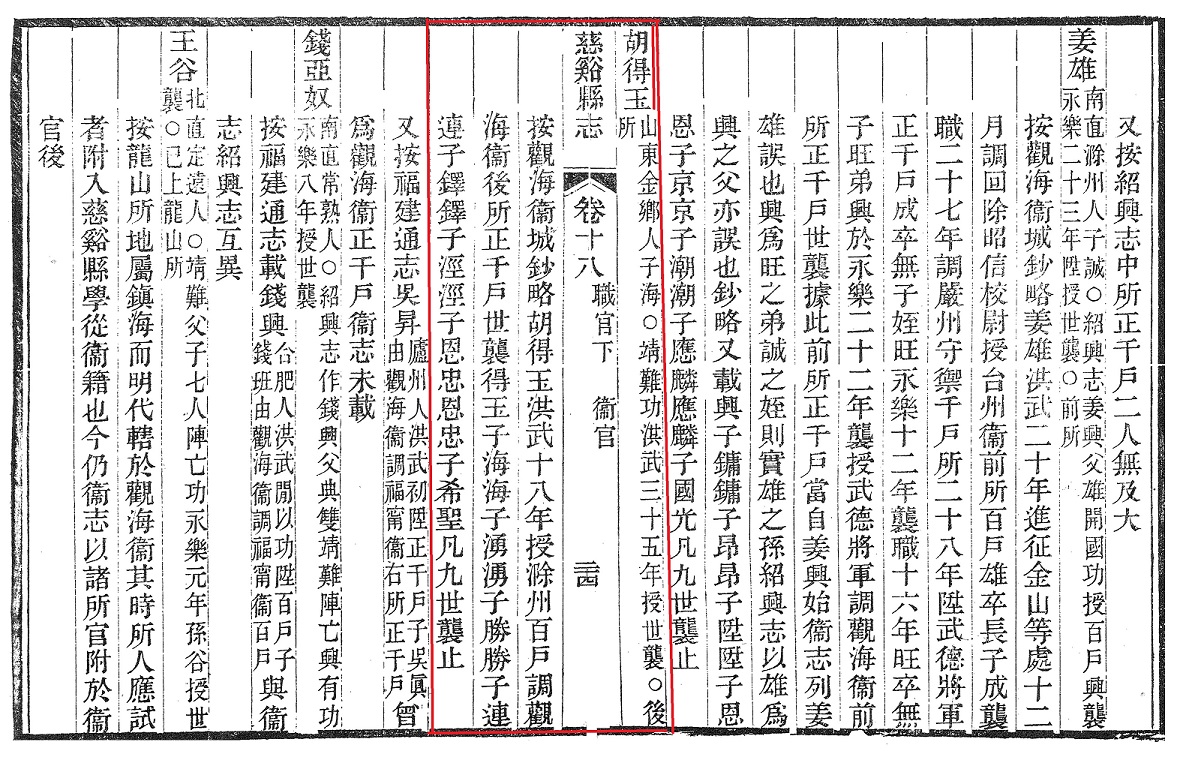 又按紹興志中所正千戶二人無及大
姜雄南直滁州人子誠○紹興志姜興父雄開國功授百戶興襲
永樂二十三年陞授世襲○前所
按觀海衞城鈔略姜雄洪武二十年進征金山等處十二
月調回除昭信校尉授台州衞前所百戶雄卒長子成襲
職二十七年調嚴州守禦千戶所二十八年陞武德將軍
正千戶成卒無子姪旺永樂十二年襲職十六年旺卒無
子旺弟興於永樂二十二年襲授武德將軍調觀海衞前
所正千戶世襲據此前所正千戶當自姜興始衞志列姜
雄誤也興爲旺之弟誠之姪則實雄之孫紹興志以雄爲
興之父亦誤也鈔略又載興子鏞鏞子昂昂子陞陞子恩
恩子京京子潮潮子應麟應麟子國光凡九世襲止
胡得玉山東金鄉人子海○靖難功洪武三十五年授世襲○後
所
慈谿縣志 卷十八 職官下 衞官 三四
按觀海衞城鈔略胡得玉洪武十八年授滁州百戶調觀
海衞後所正千戶世襲得玉子海海子湧湧子勝勝子連
連子鐸鐸子涇涇子恩忠恩忠子希聖凡九世襲止
又按福建通志吳昇廬州人洪武初陞正千戶子吳眞曾
由觀海衞調福甯衞右所正千戶
爲觀海衞正千戶衞志未載
錢亞奴南直常熟人○紹興志作錢興父典雙靖難陣亡興有功
永樂八年授世襲
按福建通志載錢興合肥人洪武閒以功陞百戶子
錢班由觀海衞調福甯衞百戶與衞
志紹興志互異
王谷北直定遠人○靖難父子七人陣亡功永樂元年孫谷授世
襲○已上龍山所
按龍山所地屬鎮海而明代轄於觀海衞其時所人應試
者附入慈谿縣學從衞籍也今仍衞志以諸所官附於衞
官後